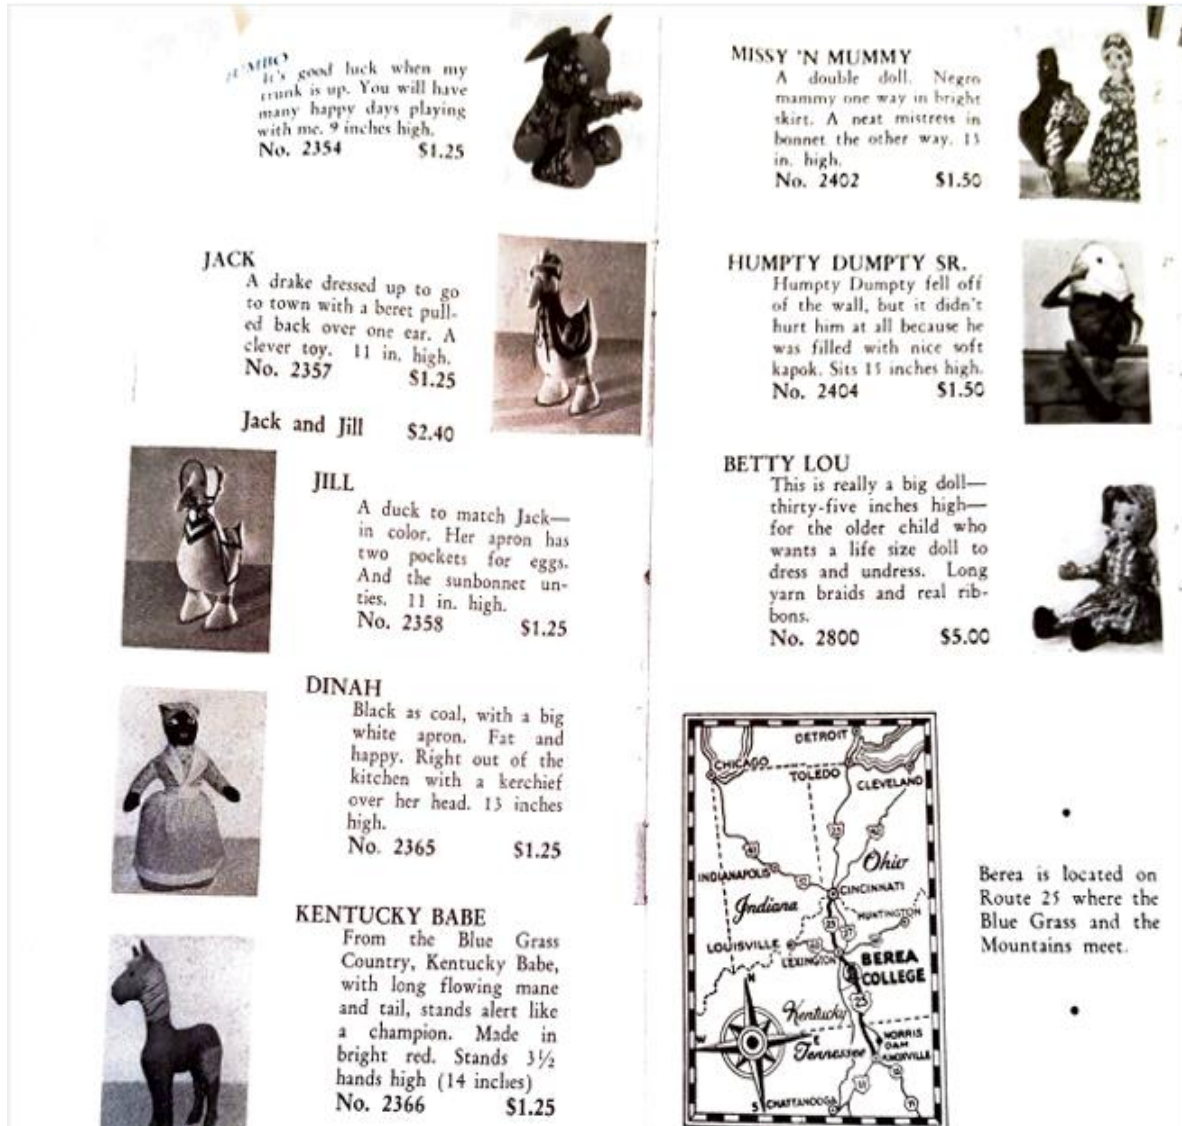 JUMBO
It's good luck when my
trunk is up. You will have
many happy days playing
with me. 9 inches high.
No. 2354 $1.25
JACK
A drake dressed up to go
to town with a beret pull-
ed back over one ear. A
clever toy. 11 in. high.
No. 2357 $1.25
Jack and Jill $2.40
JILL
A duck to match Jack—
in color. Her apron has
two pockets for eggs.
And the sunbonnet un-
ties. 11 in. high.
No. 2358 $1.25
DINAH
Black as coal, with a big
white apron. Fat and
happy. Right out of the
kitchen with a kerchief
over her head. 13 inches
high.
No. 2365 $1.25
KENTUCKY BABE
From the Blue Grass
Country, Kentucky Babe,
with long flowing mane
and tail, stands alert like
a champion. Made in
bright red. Stands 3½
hands high (14 inches)
No. 2366 $1.25
MISSY 'N MUMMY
A double doll. Negro
mammy one way in bright
skirt. A neat mistress in
bonnet the other way. 15
in. high.
No. 2402 $1.50
HUMPTY DUMPTY SR.
Humpty Dumpty fell off
of the wall, but it didn't
hurt him at all because he
was filled with nice soft
kapok. Sits 15 inches high.
No. 2404 $1.50
BETTY LOU
This is really a big doll—
thirty-five inches high—
for the older child who
wants a life size doll to
dress and undress. Long
yarn braids and real rib-
bons.
No. 2800 $5.00
DETROIT
CHICAGO
TOLEDO
CLEVELAND
25
Ohio
INDIANAPOLIS
52
CINCINNATI
Indiana
HUNTINGTON
25
27
LOUISVILLE
60
LEXINGTON
BEREA
COLLEGE
N
25
Kentucky
W
E
NORRIS
DAM
Tennessee
KNOXVILLE
S
CHATTANOOGA
11
Berea is located on
Route 25 where the
Blue Grass and the
Mountains meet.